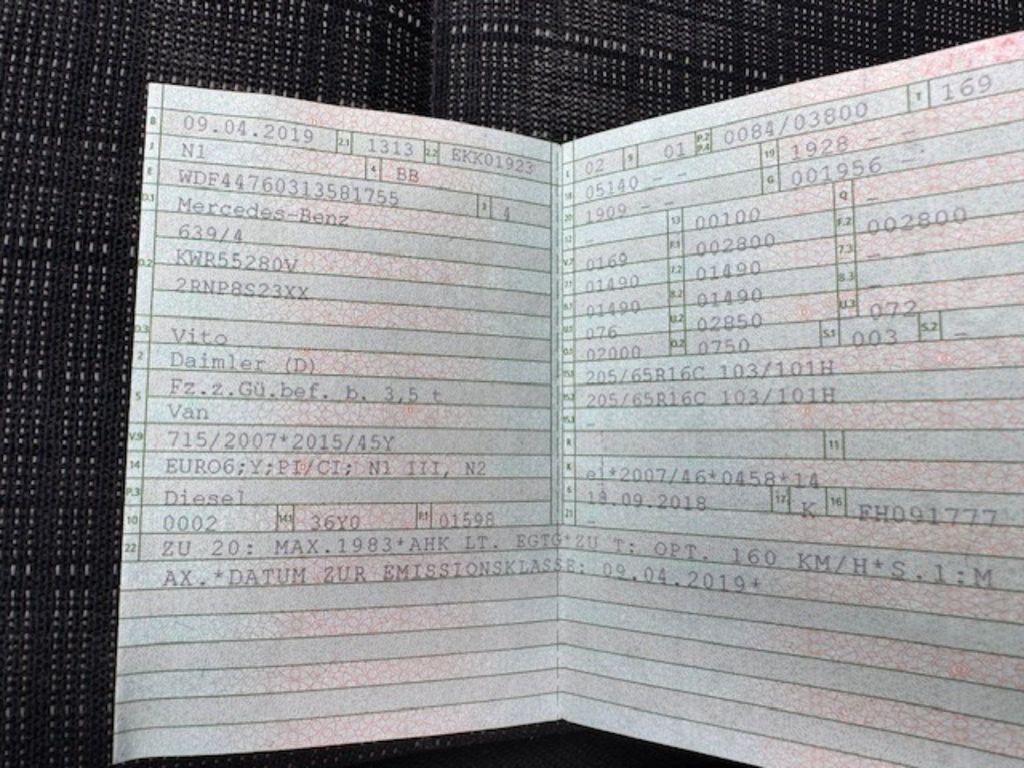 B 09.04.2019 2.1 1313 2.2 EKK01923
J N1 4 BB
E WDF44760313581755 3 4
D.1 Mercedes-Benz
639/4
D.2 KWR55280V
2RNP8S23XX
D.3 Vito
2 Daimler (D)
5 Fz.z.Gü.bef. b. 3,5 t
Van
V.9 715/2007*2015/45Y
14 EURO6;Y;PI/CI; N1 III, N2
P.3 Diesel
10 0002 14.1 36Y0 P.1 01598
22 ZU 20: MAX.1983*AHK LT. EGTG*ZU T: OPT. 160 KM/H*S.1:M
AX.*DATUM ZUR EMISSIONSKLASSE: 09.04.2019*
L 02 9 01 P.2 P.4 0084/03800 T 169
18 05140 - - 19 1928 - -
20 1909 - - G 001956 - -
12 - 13 00100 Q -
V.7 0169 F.1 002800 F.2 002800
7.1 01490 7.2 01490 7.3 -
8.1 01490 8.2 01490 8.3 -
U.1 076 U.2 02850 U.3 072
O.1 02000 O.2 0750 S.1 003 S.2 -
15.1 205/65R16C 103/101H
15.2 205/65R16C 103/101H
15.3 -
R 11
K e1*2007/46*0458*14
6 18.09.2018 17 K 16 FH091777
21 -